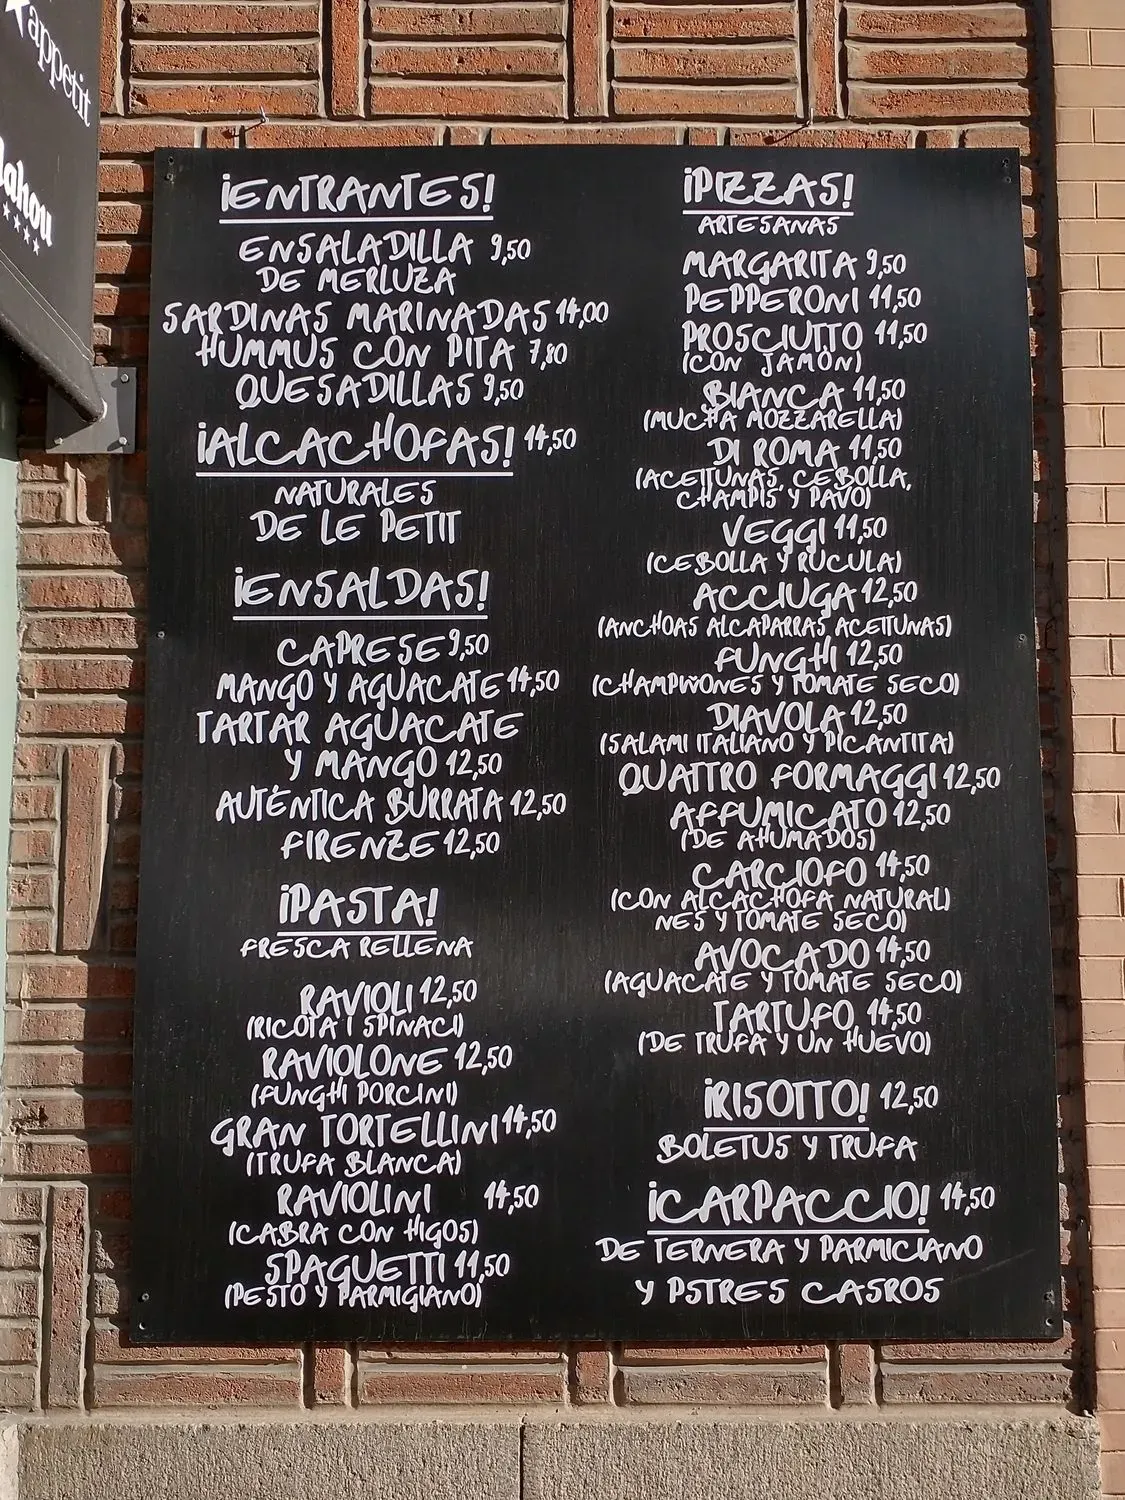 appetit
Mahou
¡ENTRANTES!
ENSALADILLA 9,50
DE MERLUZA
SARDINAS MARINADAS 14,00
HUMMUS CON PITA 7,80
QUESADILLAS 9,50
¡ALCACHOFAS! 14,50
NATURALES
DE LE PETIT
¡ENSALDAS!
CAPRESE 9,50
MANGO Y AGUACATE 14,50
TARTAR AGUACATE
Y MANGO 12,50
AUTÉNTICA BURRATA 12,50
FIRENZE 12,50
¡PASTA!
FRESCA RELLENA
RAVIOLI 12,50
(RICOTA I SPINACI)
RAVIOLONE 12,50
(FUNGHI PORCINI)
GRAN TORTELLINI 14,50
(TRUFA BLANCA)
RAVIOLINI 14,50
(CABRA CON HIGOS)
SPAGUETTI 11,50
(PESTO Y PARMIGIANO)
¡PIZZAS!
ARTESANAS
MARGARITA 9,50
PEPPERONI 11,50
PROSCIUTTO 11,50
(CON JAMÓN)
BIANCA 11,50
(MUCHA MOZZARELLA)
DI ROMA 11,50
(ACEITUNAS, CEBOLLA,
CHAMPIS Y PAVO)
VEGGI 11,50
(CEBOLLA Y RUCULA)
ACCIUGA 12,50
(ANCHOAS ALCAPARRAS ACEITUNAS)
FUNGHI 12,50
(CHAMPIÑONES Y TOMATE SECO)
DIAVOLA 12,50
(SALAMI ITALIANO Y PICANTITA)
QUATTRO FORMAGGI 12,50
AFFUMICATO 12,50
(DE AHUMADOS)
CARCIOFO 14,50
(CON ALCACHOFA NATURAL)
NES Y TOMATE SECO)
AVOCADO 14,50
(AGUACATE Y TOMATE SECO)
TARTUFO 14,50
(DE TRUFA Y UN HUEVO)
¡RISOTTO! 12,50
BOLETUS Y TRUFA
¡CARPACCIO! 14,50
DE TERNERA Y PARMICIANO
Y PSTRES CASROS